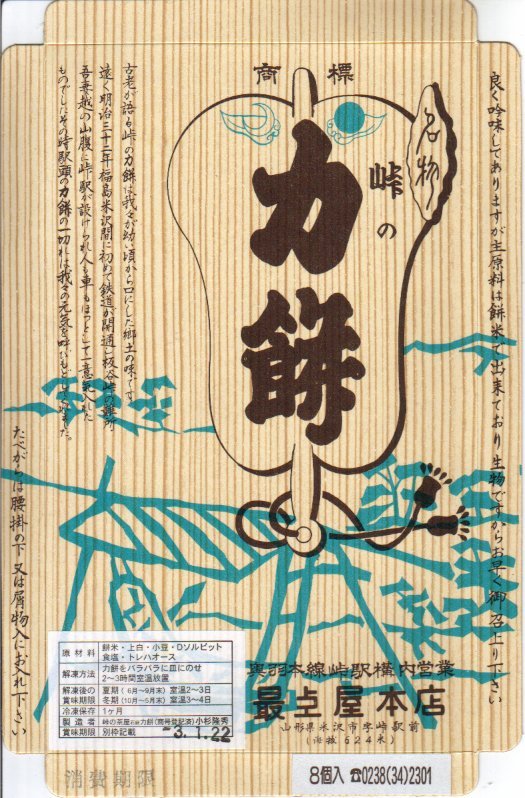 商標
名物
峠の
力餅
良く吟味してありますが主原料は餅米で出来ており生物ですからお早く御召上り下さい
古老が語る峠の力餅は我々が幼い頃から口にした郷土の味です。
遠く明治三十二年福島米沢間に初めて鉄道が開通し板谷峠の難所
吾妻越の山腹に峠駅が設けられ人も車もほっとして一意気入した
ものでしたその時駅頭の力餅の一切れは我々の元気を呼びもどして
たべがらは腰掛の下又は屑物入にお入れ下さい
奥羽本線峠駅構内営業
最上屋本店
山形県米沢市字峠駅前
(海抜624米)
原材料 餅米・上白・小豆・Dソルビット
食塩・トレハオース
解凍方法 力餅をバラバラに皿にのせ
2〜3時間室温放置
解凍後の 夏期(6月〜9月末) 室温2〜3日
賞味期限 冬期(10月〜5月末) 室温3〜4日
冷凍保存 1ヶ月
製造者 峠の茶屋 力餅(商標登記済)小杉隆秀
賞味期限 別枠記載
-3.1.22
消費期限
8個入 ☎0238(34)2301